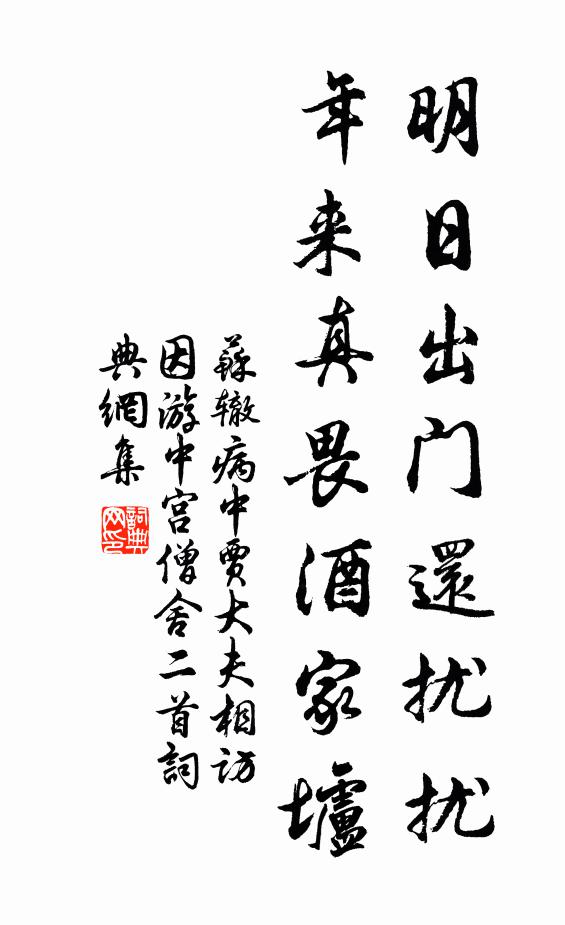 明日出门還扰扰
年来真畏酒家壚
蘇辙病中賈大夫相访
因游中宫僧舍二首詞
典網集
詞典网印